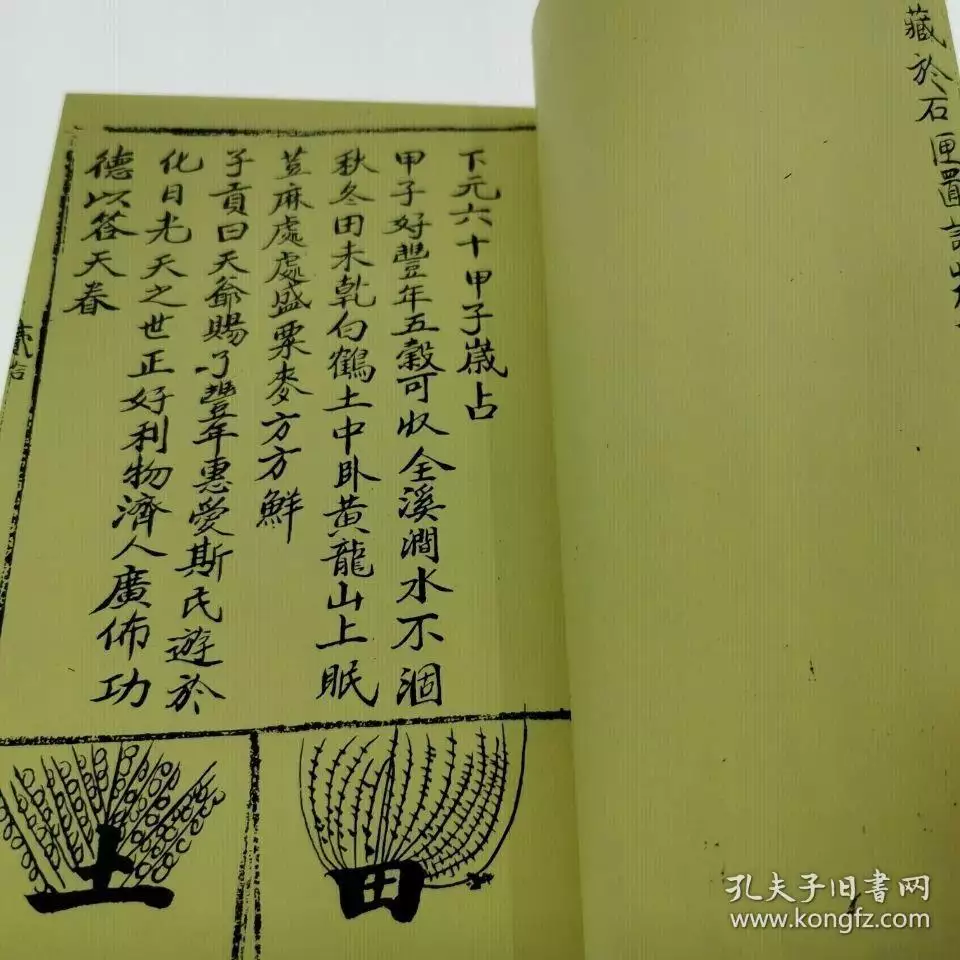 藏於石匣置
下元六十甲子歲占
甲子好豐年五穀可收全溪澗水不涸
秋冬田未乾白鶴土中卧黄龍山上眠
荳麻處處盛粟麥方方鮮
子貢曰天爺賜了豐年惠愛斯民遊於
化日光天之世正好利物濟人廣佈功
德以答天眷
田
土
孔夫子旧书网
www.kongfz.com